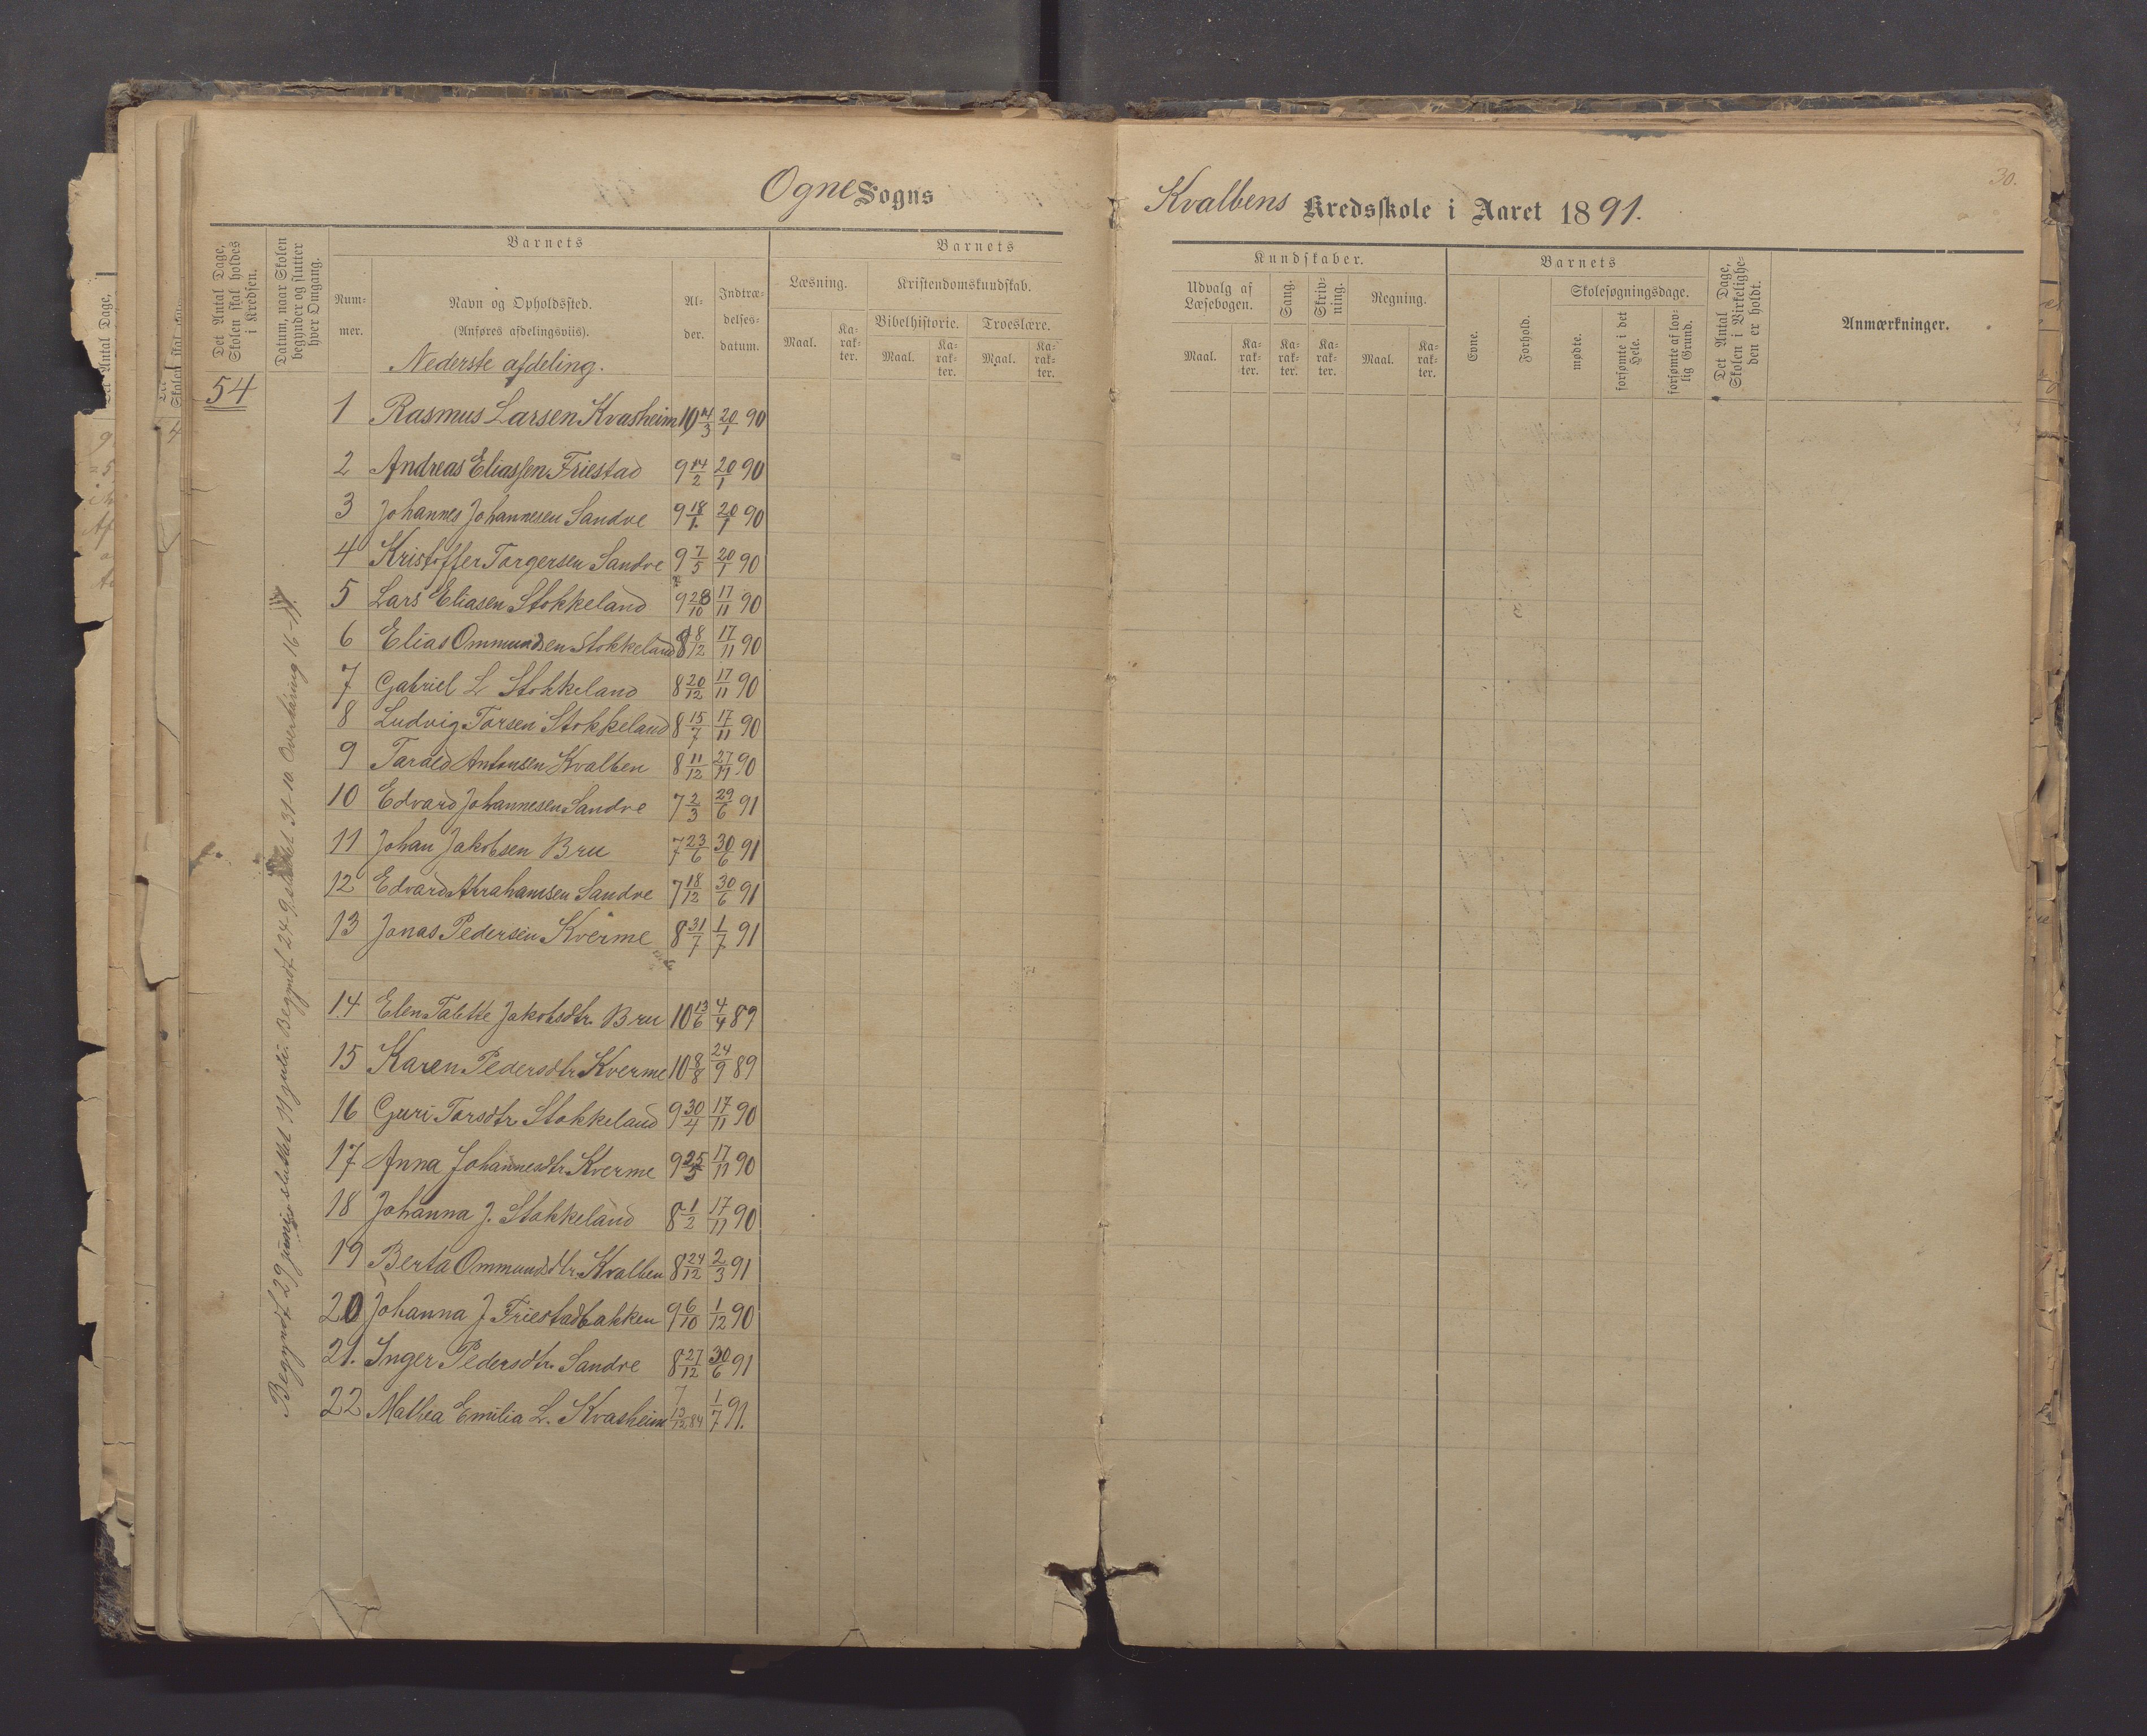 Ogne Sogns
Kvalbens Kredsskole i Aaret 1891.
30.
Det Antal Dage, Skolen skal holdes i Kredsen.
Datum, naar Skolen begynder og slutter hver Omgang.
Barnets
Num-
mer.
Navn og Opholdssted.
(Anføres afdelingsviis).
Al-
der.
Indtræ-
delses-
datum.
Barnets
Læsning.
Maal.
Ka-
rak-
ter.
Kristendomskundskab.
Bibelhistorie.
Maal.
Ka-
rak-
ter.
Troeslære.
Maal.
Ka-
rak-
ter.
Kundskaber.
Udvalg af
Læsebogen.
Maal.
Ka-
rak-
ter.
Sang.
Ka-
rak-
ter.
Skriv-
ning.
Ka-
rak-
ter.
Regning.
Maal.
Ka-
rak-
ter.
Barnets
Evne.
Forhold.
Skolesøgningsdage.
mødte.
forsømte i det Hele.
forsømte af lov-
lig Grund.
Det Antal Dage, Skolen i Virkelighe-
den er holdt.
Anmærkninger.
Nederste afdeling.
54
Begyndt 29 juni sluttet 11 juli. Begyndt 24-9 sluttet 31-10.
1 Rasmus Larsen Kvasheim 10 14/3 20/1 90
2 Andreas Eliassen Friestad 9 14/2 20/1 90
3 Johannes Johannesen Sandve 9 18/1 20/1 90
4 Kristoffer Torgersen Sandve 9 7/5 20/1 90
5 Lars Eliasen Stokkeland 9 28/10 17/11 90
6 Elias Ommundsen Stokkeland 8 18/12 17/11 90
7 Gabriel L Stokkeland 8 20/12 17/11 90
8 Ludvig Torsen Stokkeland 8 15/7 17/11 90
9 Tarald Antonsen Kvalben 8 11/12 27/11 90
10 Edvard Johannesen Sandve 7 2/3 29/6 91
11 Johan Jakobsen Bru 7 23/6 30/6 91
12 Edvard Abrahamsen Sandve 7 18/12 30/6 91
13 Jonas Pedersen Kverme 8 31/7 1/7 91
14 Elen Talette Jakobsdtr. Bru 10 13/6 4/4 89
15 Karen Pedersdtr. Kverme 10 8/8 24/9 89
16 Guri Torsdtr. Stokkeland 9 30/4 17/11 90
17 Anna Johannesdtr. Kverme 9 25/5 17/11 90
18 Johanna J. Stokkeland 8 1/2 17/11 90
19 Berta Ommundsdtr. Kvalben 8 24/12 2/3 91
20 Johanna J. Friestadbakken 9 6/10 1/12 90
21. Inger Pedersdtr. Sandve 8 27/12 30/6 91
22 Mathea Emilia L. Kvasheim 1/7 91.